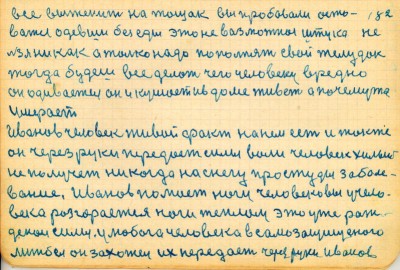 все выжениш на тощак вы пробовали оста- 182
ватся одевши без еды это не возможная штука не
льзя никак а толко надо пополнят свой желудок
тогда будеш все делат чего человеку вредно
он одивается он и кушоет и в доме живет а почемута
Умирает
Иванов человек живой факт на нем ест и тоже
он через руки передает силы воли человек хилый
не получет никогда на снегу простуды заболе-
вание, Иванов помоет ноги человекови у чело-
века разгорается ноги теплом это уже рож-
деная сила, у любога человека в самозащищеного
лишбы он захотел их передает через руки Иванов